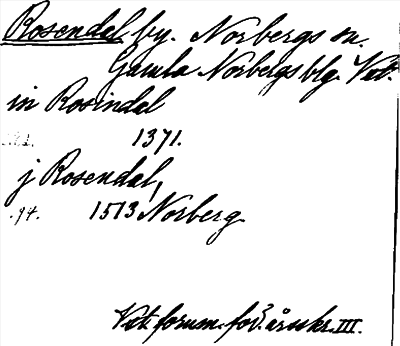 Rosendal by. Norbergs sn.
Gamla Norbergs blg. Vst.
in Rosindal
1371.
j Rosendal,
.94. 1513 Norberg
Vst. fornm. för. årsskr. III.